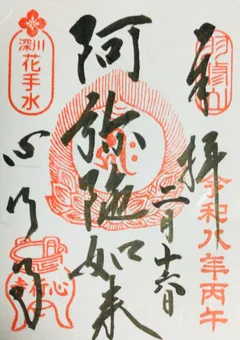 奉拝
令和八年丙午
二月十六日
阿弥陀如来
深川
花手水
心行寺